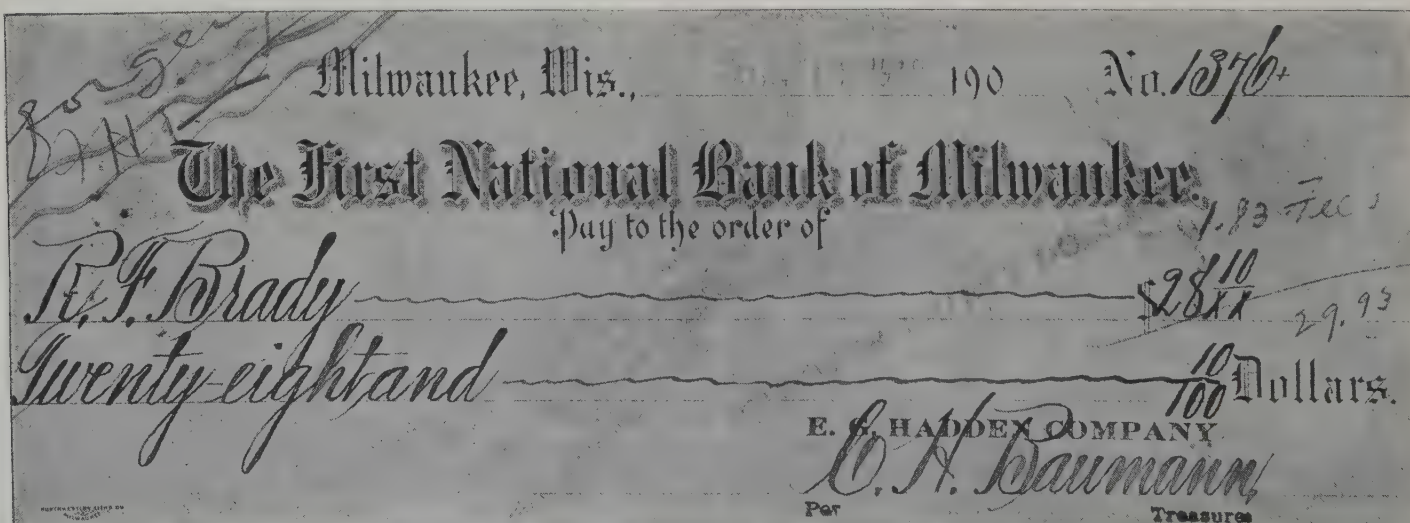 Milwaukee, Wis., 190 No. 1376
The First National Bank of Milwaukee.
1.83 Fee
Pay to the order of
R. F. Brady $28 10/xx
29.93
Twenty-eight and 10/100 Dollars.
E. G. HADDEN COMPANY
C. H. Baumann,
Per Treasurer